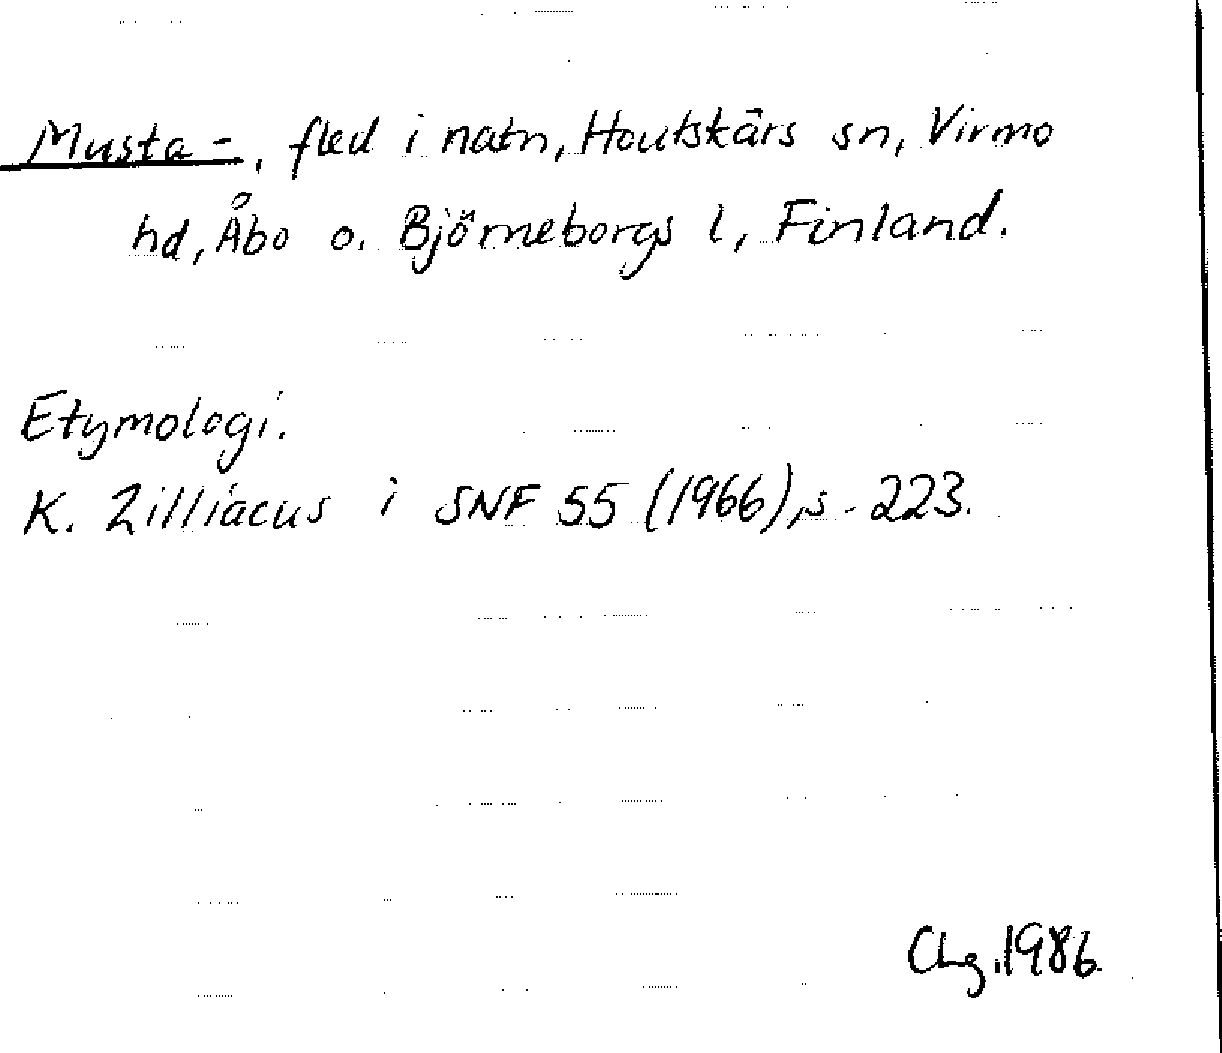 Musta-, fled i natn, Houtskärs sn, Virmo
hd, Åbo o. Björneborgs l, Finland.
Etymologi.
K. Zilliacus i SNF 55 (1966), s. 223.
Chg. 1986